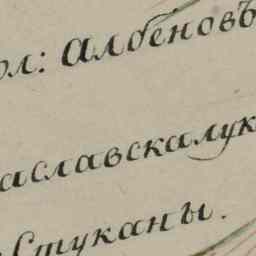 ол: Албеновъ
аславскалук
Стуканы.